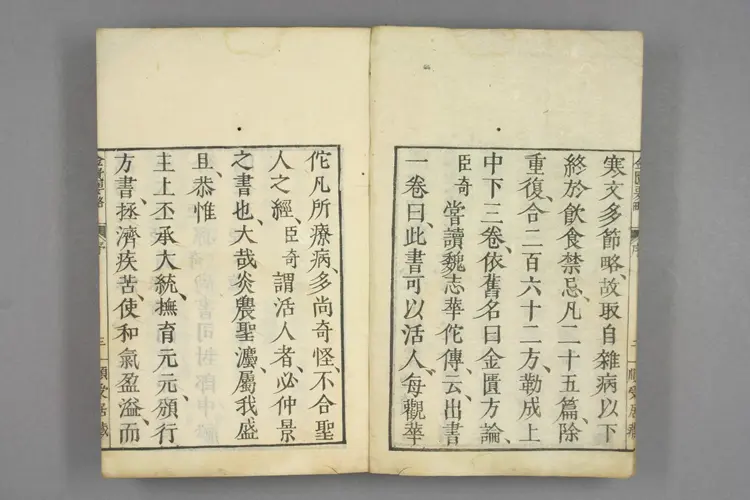 寒文多節略、故取自雜病以下
終於飲食禁忌、凡二十五篇、除
重復、合二百六十二方、勒成上
中下三卷、依舊名曰金匱方論、
臣奇嘗讀魏志華佗傳、云、出書
一卷曰、此書可以活人、每觀華
佗凡所療病、多尚奇怪、不合聖
人之經、臣奇謂活人者、必仲景
之書也、大哉炎農聖灋、屬我盛
旦、恭惟
主上丕承大統、撫育元元、頒行
方書、拯濟疾苦、使和氣盈溢、而
序
三